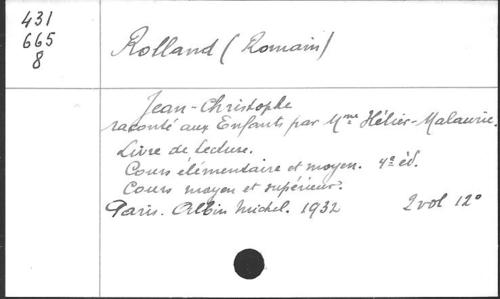 431
665
8
Rolland (Romain)
Jean-Christophe
raconté aux Enfants par Mme Hélier-Malaurie.
Livre de Lecture.
Cours élémentaire et moyen. 4e éd.
Cours moyen et supérieur.
Paris. Albin Michel. 1932 2 vol 12°